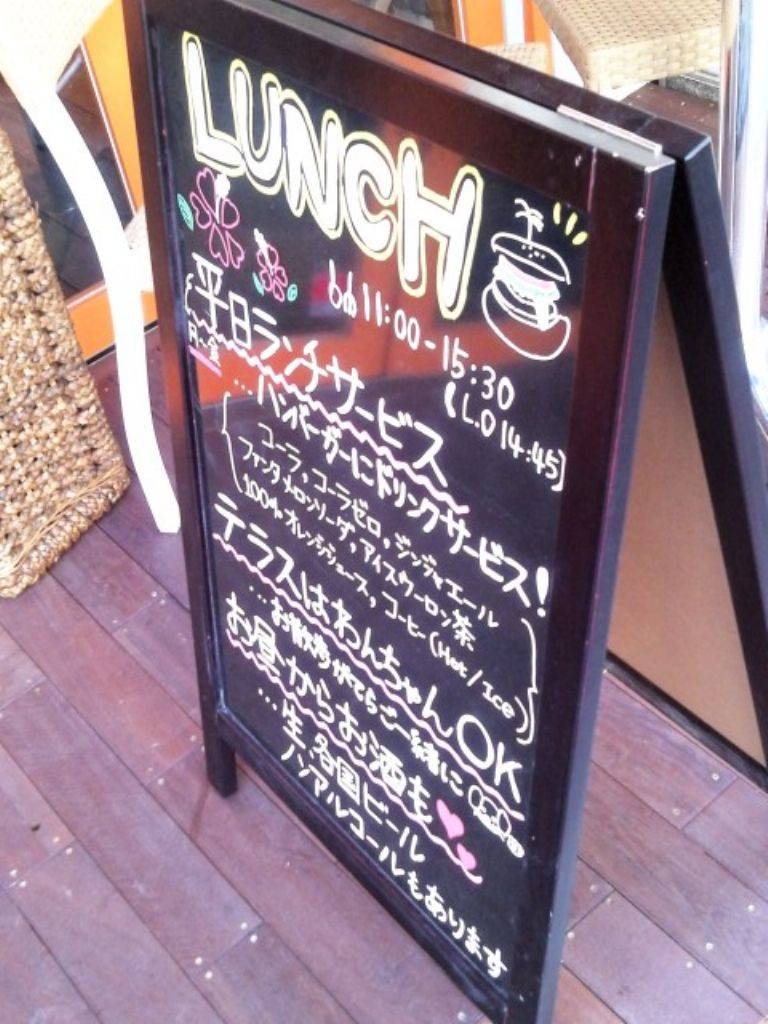 LUNCH
11:00-15:30
(L.O 14:45)
平日ランチサービス
月~金
…ハンバーガーにドリンクサービス!
コーラ, コーラゼロ, ジンジャエール
ファンタメロンソーダ, アイスウーロン茶
100%オレンジジュース, コーヒー(Hot/Ice)
テラスはわんちゃんOK
…お散歩がてらご一緒に
お昼からお酒も
…生, 各国ビール
ノンアルコールもあります